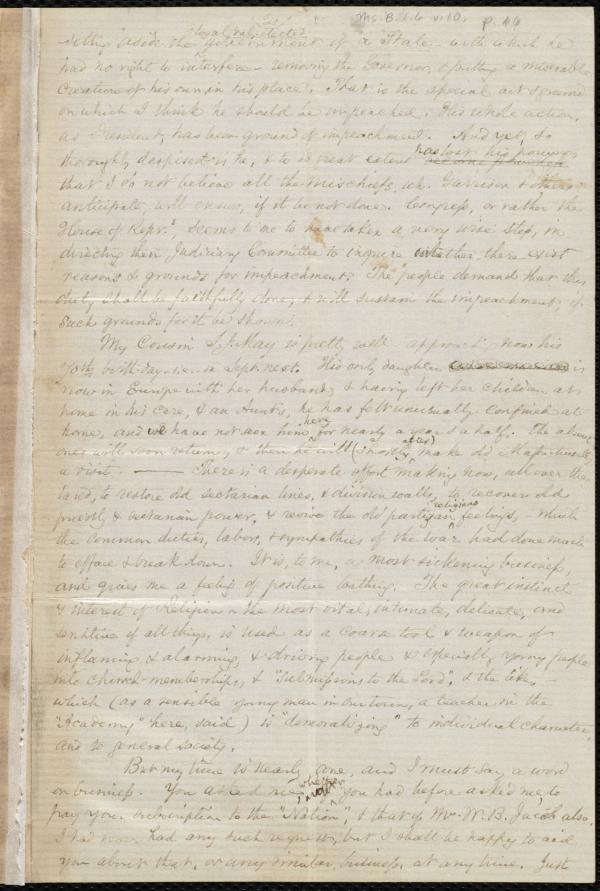 Ms. B.1.6 v.10. p. 46
loyal, reelected
setting aside the government of a State - with which he
had no right to interfere - removing the Governor, & putting a miserable
creature of his own in his place. That is the special act & ground
on which I think he should be impeached. His whole action,
as President, has been ground of impeachment. And yet, so
thoroughly despised is he, & to so great extent has lost his power,
that I do not believe all the mischiefs, wh. Garrison & others
anticipate, will ensue, if it be not done. Congress, or rather the
House of Reprs, seems to me to have taken a very wise step, in
directing their Judiciary Committee to inquire whether there exist
reasons & grounds for impeachment. The people demand that this
duty shall be faithfully done, & will sustain the impeachment, if
such grounds for it be shown.
My Cousin S. May is pretty well - approachg now his
70th birth-day - i.e. in Sept. next. His only daughter is
now in Europe with her husband; & having left her children at
home in his care, & an Aunt's, he has felt unusually confined at
home, and we have not seen him here for nearly a year & a half. The absent
ones will soon return, & then he will (shortly after) make old Massachusetts
a visit. —— There is a desperate effort making now, all over the
land, to restore old sectarian lines, & division walls, to recover old
priestly & sectarian power, & revive the old partizan religious feelings, - which
the common duties, labors, & sympathies of the war had done much
to efface & break down. It is, to me, a most sickening business,
and gives me a feeling of positive loathing. The great instinct
& interest of Religion in the most vital, intimate, delicate, and
sensitive of all things, is used as a coarse tool & weapon of
inflaming & alarming, & driving people & especially young people
into church-memberships, & "submissions to the Lord", & the like, -
which (as a sensible young man in our town, a teacher in the
"Academy" here, said) is "demoralizing" to individual character,
and to general society.
But my time is nearly gone, and I must say a word
on business. You asked me whether you had before asked me, to
pay your subscription to the "Nation", & that of Mr. W. B. Jacob also.
I had never had any such request, but I shall be happy to aid
you about that, or any similar business, at any time. Just